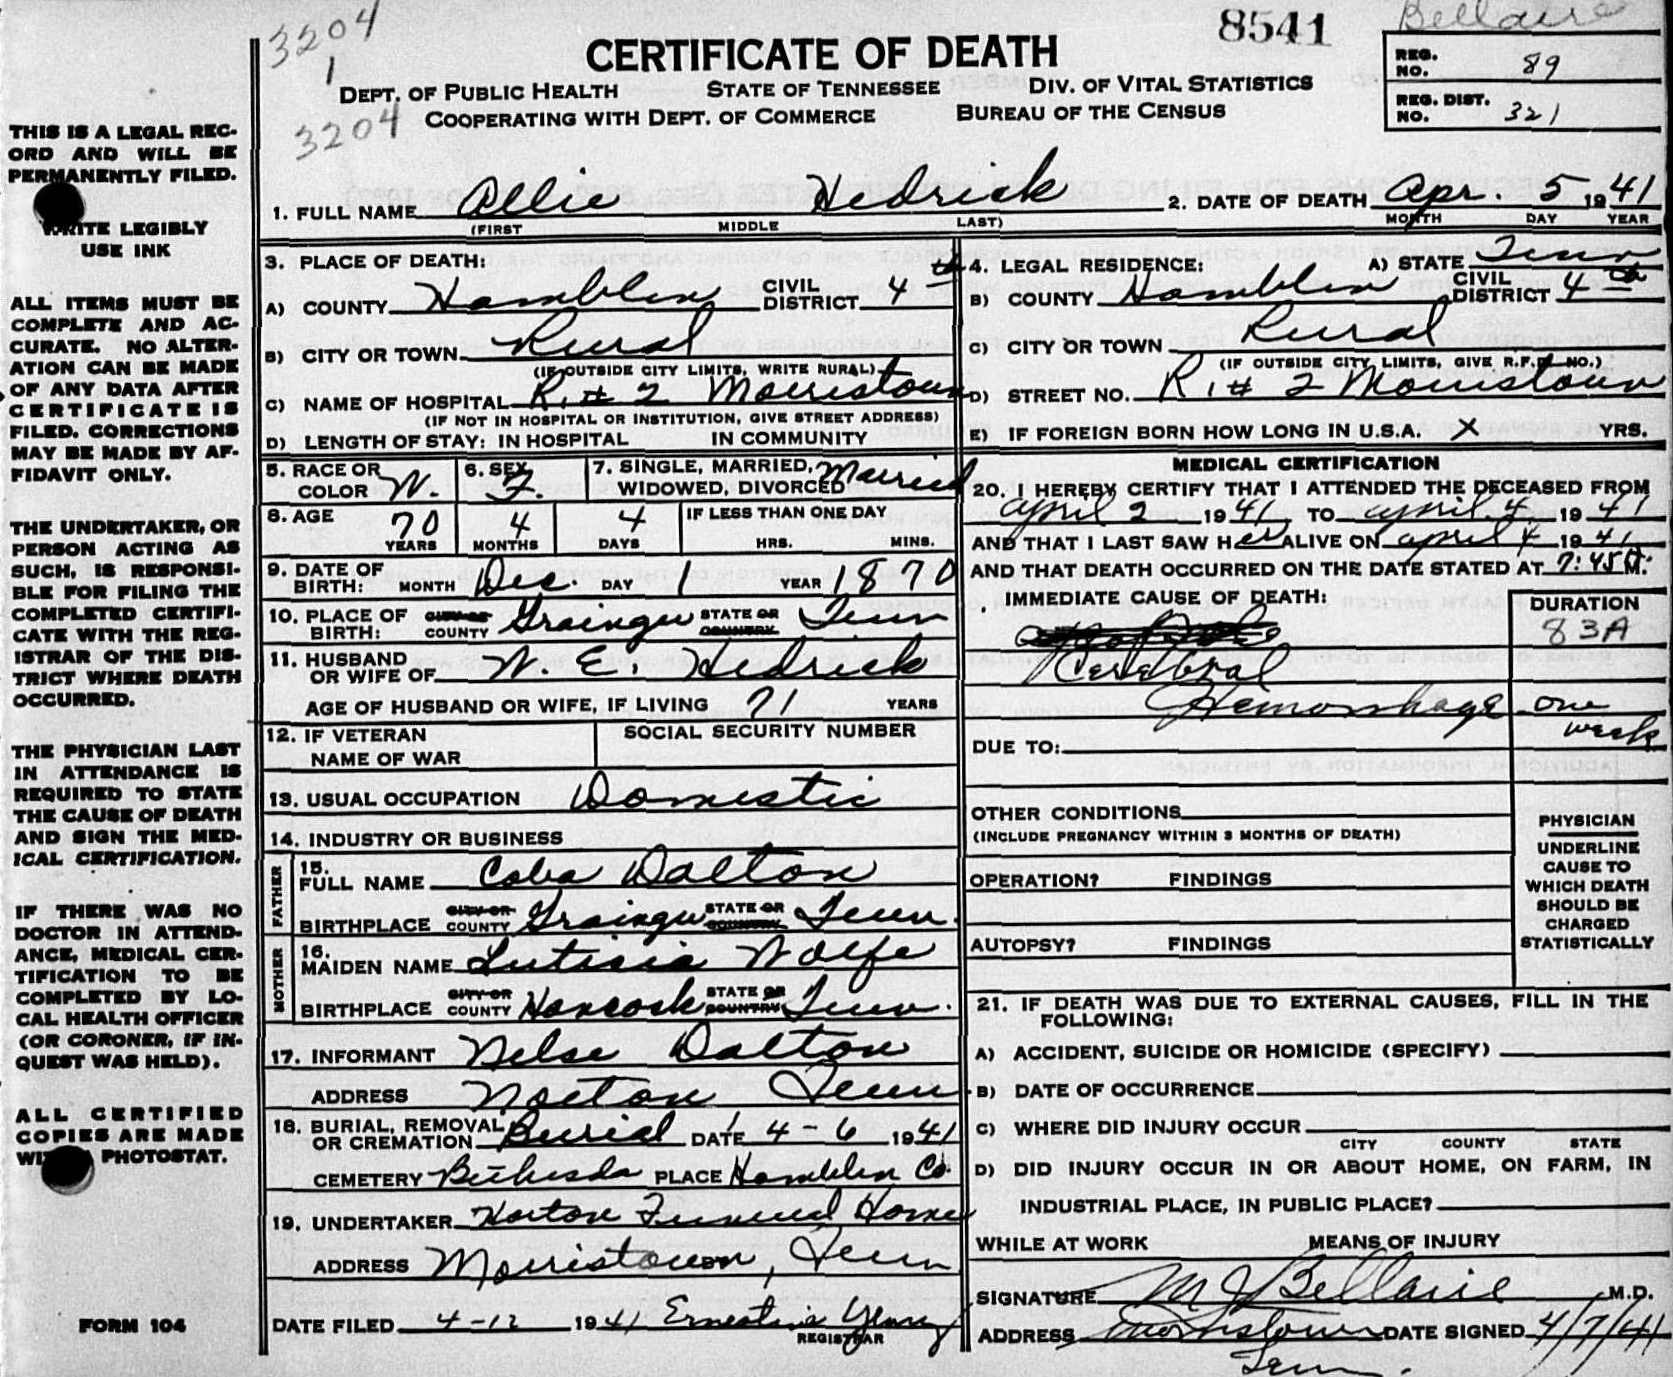 3204 8541 Bellaire
1
CERTIFICATE OF DEATH
REG. NO. 89
DEPT. OF PUBLIC HEALTH STATE OF TENNESSEE DIV. OF VITAL STATISTICS
3204 COOPERATING WITH DEPT. OF COMMERCE BUREAU OF THE CENSUS
REG. DIST. NO. 321
THIS IS A LEGAL REC-
ORD AND WILL BE
PERMANENTLY FILED.
WRITE LEGIBLY
USE INK
ALL ITEMS MUST BE
COMPLETE AND AC-
CURATE. NO ALTER-
ATION CAN BE MADE
OF ANY DATA AFTER
CERTIFICATE IS
FILED. CORRECTIONS
MAY BE MADE BY AF-
FIDAVIT ONLY.
THE UNDERTAKER, OR
PERSON ACTING AS
SUCH, IS RESPONSI-
BLE FOR FILING THE
COMPLETED CERTIFI-
CATE WITH THE REG-
ISTRAR OF THE DIS-
TRICT WHERE DEATH
OCCURRED.
THE PHYSICIAN LAST
IN ATTENDANCE IS
REQUIRED TO STATE
THE CAUSE OF DEATH
AND SIGN THE MED-
ICAL CERTIFICATION.
IF THERE WAS NO
DOCTOR IN ATTEND-
ANCE, MEDICAL CER-
TIFICATION TO BE
COMPLETED BY LO-
CAL HEALTH OFFICER
(OR CORONER, IF IN-
QUEST WAS HELD).
ALL CERTIFIED
COPIES ARE MADE
WITH PHOTOSTAT.
FORM 104
1. FULL NAME Allie Hedrick 2. DATE OF DEATH Apr. 5 1941
(FIRST MIDDLE LAST) MONTH DAY YEAR
3. PLACE OF DEATH:
A) COUNTY Hamblen CIVIL DISTRICT 4th
B) CITY OR TOWN Rural
(IF OUTSIDE CITY LIMITS, WRITE RURAL)
C) NAME OF HOSPITAL R. # 2 Morristown
(IF NOT IN HOSPITAL OR INSTITUTION, GIVE STREET ADDRESS)
D) LENGTH OF STAY: IN HOSPITAL IN COMMUNITY
5. RACE OR COLOR W. 6. SEX F. 7. SINGLE, MARRIED, WIDOWED, DIVORCED Married
8. AGE 70 YEARS 4 MONTHS 4 DAYS IF LESS THAN ONE DAY HRS. MINS.
9. DATE OF BIRTH: MONTH Dec. DAY 1 YEAR 1870
10. PLACE OF BIRTH: CITY OR COUNTY Grainger STATE OR COUNTRY Tenn
11. HUSBAND OR WIFE OF W. E. Hedrick
AGE OF HUSBAND OR WIFE, IF LIVING 71 YEARS
12. IF VETERAN NAME OF WAR SOCIAL SECURITY NUMBER
13. USUAL OCCUPATION Domestic
14. INDUSTRY OR BUSINESS
FATHER
15. FULL NAME Coba Dalton
BIRTHPLACE CITY OR COUNTY Grainger STATE OR COUNTRY Tenn.
MOTHER
16. MAIDEN NAME Luticia Wolfe
BIRTHPLACE CITY OR COUNTY Hancock STATE OR COUNTRY Tenn.
17. INFORMANT Nelse Dalton
ADDRESS Noeton Tenn
18. BURIAL, REMOVAL OR CREMATION Burial DATE 4-6 1941
CEMETERY Bethesda PLACE Hamblen Co.
19. UNDERTAKER Horton Funeral Home
ADDRESS Morristown, Tenn
DATE FILED 4-12 1941 Ernestine
REGISTRAR
4. LEGAL RESIDENCE: A) STATE Tenn
B) COUNTY Hamblen CIVIL DISTRICT 4th
C) CITY OR TOWN Rural
(IF OUTSIDE CITY LIMITS, GIVE R.F.D. NO.)
D) STREET NO. R. # 2 Morristown
E) IF FOREIGN BORN HOW LONG IN U.S.A. X YRS.
MEDICAL CERTIFICATION
20. I HEREBY CERTIFY THAT I ATTENDED THE DECEASED FROM
April 2 1941 TO April 4 1941
AND THAT I LAST SAW HER ALIVE ON April 4 1941
AND THAT DEATH OCCURRED ON THE DATE STATED AT 7:45 A M.
IMMEDIATE CAUSE OF DEATH: DURATION
83A
Cerebral
Hemorrhage one week
DUE TO:
OTHER CONDITIONS
(INCLUDE PREGNANCY WITHIN 3 MONTHS OF DEATH)
OPERATION? FINDINGS
AUTOPSY? FINDINGS
PHYSICIAN
UNDERLINE
CAUSE TO
WHICH DEATH
SHOULD BE
CHARGED
STATISTICALLY
21. IF DEATH WAS DUE TO EXTERNAL CAUSES, FILL IN THE
FOLLOWING:
A) ACCIDENT, SUICIDE OR HOMICIDE (SPECIFY)
B) DATE OF OCCURRENCE
C) WHERE DID INJURY OCCUR
CITY COUNTY STATE
D) DID INJURY OCCUR IN OR ABOUT HOME, ON FARM, IN
INDUSTRIAL PLACE, IN PUBLIC PLACE?
WHILE AT WORK MEANS OF INJURY
SIGNATURE M J Bellaire M.D.
ADDRESS Morristown DATE SIGNED 4/7/41
Tenn.